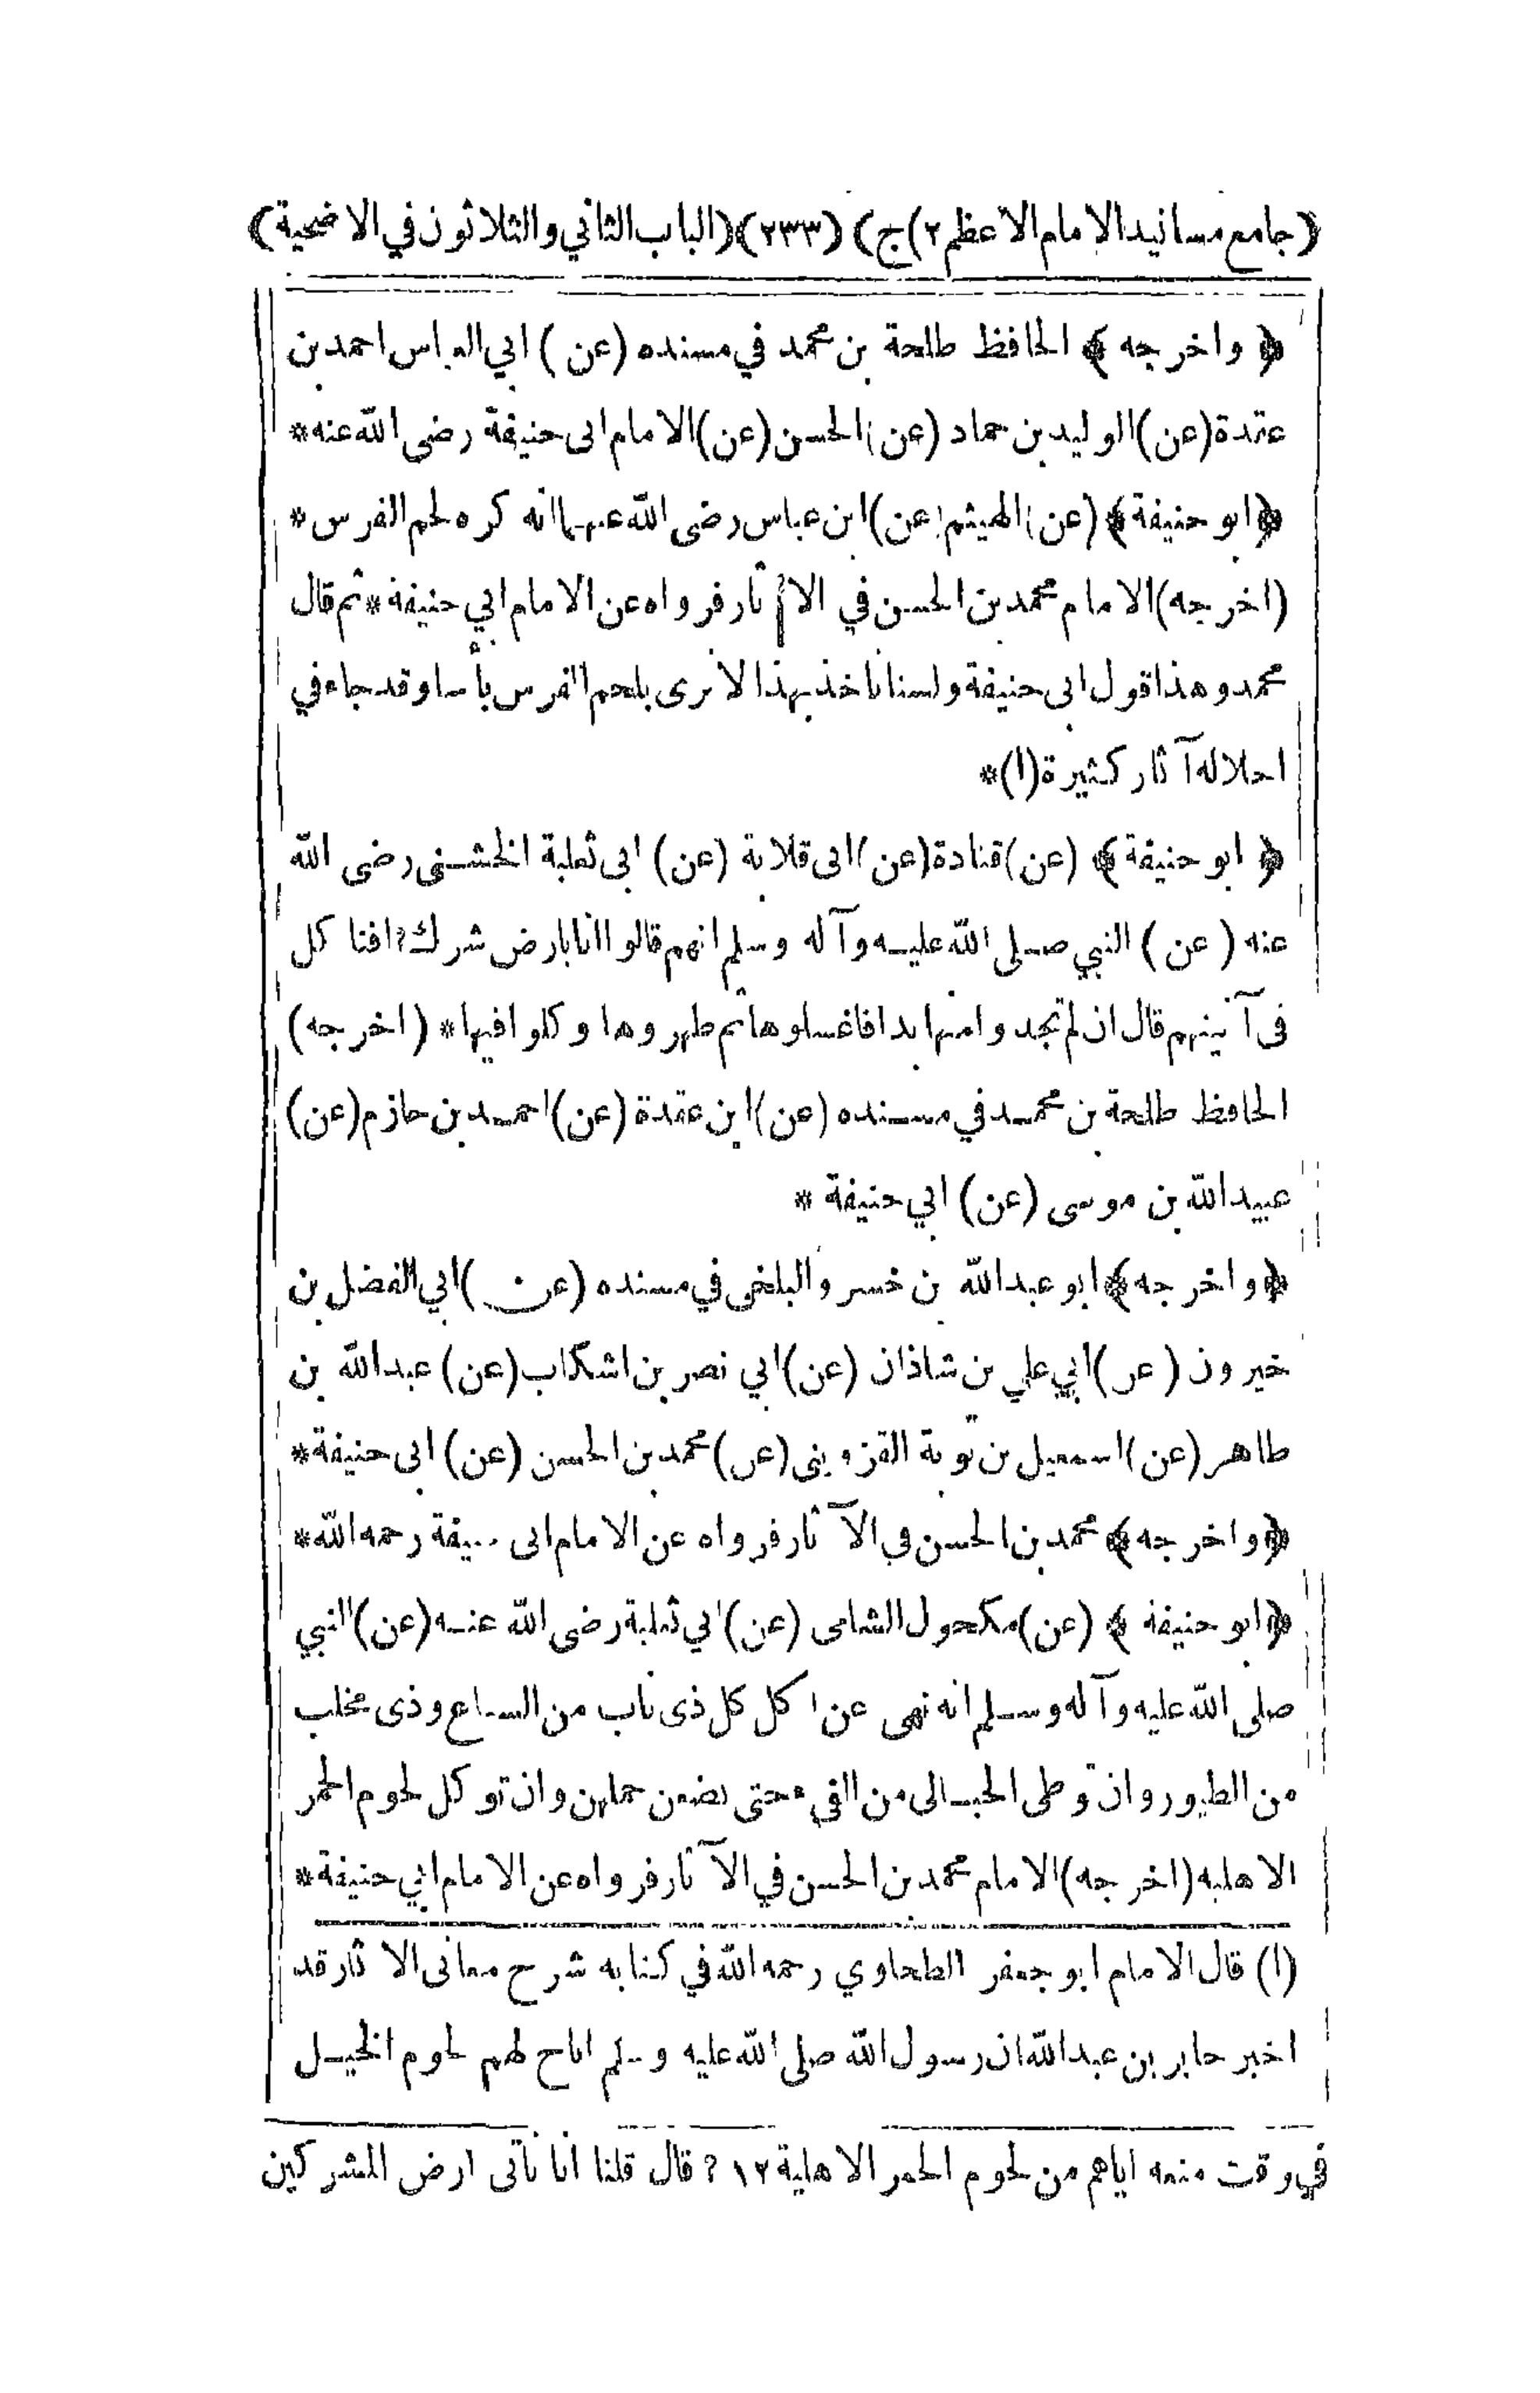 (جامع مسانيد الامام الاعظم ٢) ج) (٢٣٣) (الباب الثاني والثلاثون في الاضحية)
﴿ واخرجه ﴾ الحافظ طلحة بن محمد في مسنده (عن) ابي العباس احمد بن
عقدة (عن) الوليد بن حماد (عن) الحسن (عن) الامام ابى حنيفة رضى الله عنه *
﴿ابو حنيفة﴾ (عن) الهيثم (عن) ابن عباس رضى الله عنهما انه كره لحم الفرس *
(اخرجه) الامام محمد بن الحسن في الآثار فرواه عن الامام ابي حنيفة * ثم قال
محمد وهذا قول ابى حنيفة ولسنا نأخذ بهذا لا نرى بلحم الفرس بأسا وقد جاء في
احلاله آثار كثيرة (١) *
﴿ ابو حنيفة ﴾ (عن) قتادة (عن) ابى قلابة (عن) ابى ثعلبة الخشنى رضى الله
عنه (عن) النبي صلى الله عليه وآله وسلم انهم قالوا انا بارض شرك ? افنا كل
فى آنيتهم قال ان لم تجدوا منها بدا فاغسلوها ثم طهروها وكلوا فيها * (اخرجه)
الحافظ طلحة بن محمد في مسنده (عن) ابن عقدة (عن) احمد بن حازم (عن)
عبيد الله بن موسى (عن) ابي حنيفة *
﴿واخرجه﴾ ابو عبد الله بن خسرو البلخى في مسنده (عن) ابي الفضل بن
خيرون (عن) ابي علي بن شاذان (عن) ابي نصر بن اشكاب (عن) عبد الله بن
طاهر (عن) اسمعيل بن توبة القزوينى (عن) محمد بن الحسن (عن) ابى حنيفة *
﴿واخرجه﴾ محمد بن الحسن في الآثار فرواه عن الامام ابى حنيفة رحمه الله *
﴿ابو حنيفة ﴾ (عن) مكحول الشامى (عن) ابي ثعلبة رضى الله عنه (عن) النبي
صلى الله عليه وآله وسلم انه نهى عن اكل كل ذى ناب من السباع وذى مخلب
من الطيور وان توطى الحبالى من الفيء حتى يضعن حملهن وان توكل لحوم الحمر
الاهلية (اخرجه) الامام محمد بن الحسن في الآثار فرواه عن الامام ابي حنيفة *
(١) قال الامام ابو جعفر الطحاوي رحمه الله في كتابه شرح معانى الاثار قد
اخبر جابر بن عبد الله ان رسول الله صلى الله عليه وسلم اباح لهم لحوم الخيل
في وقت منعه اياهم من لحوم الحمر الاهلية ١٢ ? قال قلنا انا نأتى ارض المشركين